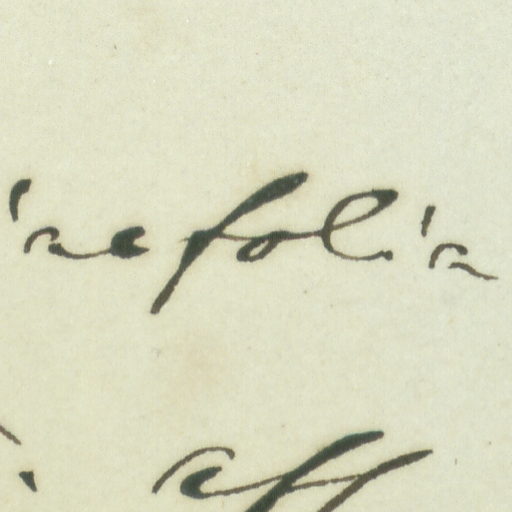 aefolia
aff